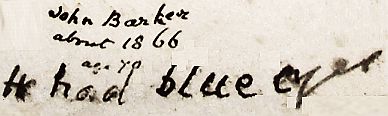 John Barker
about 1866
age 70
He had blue eyes